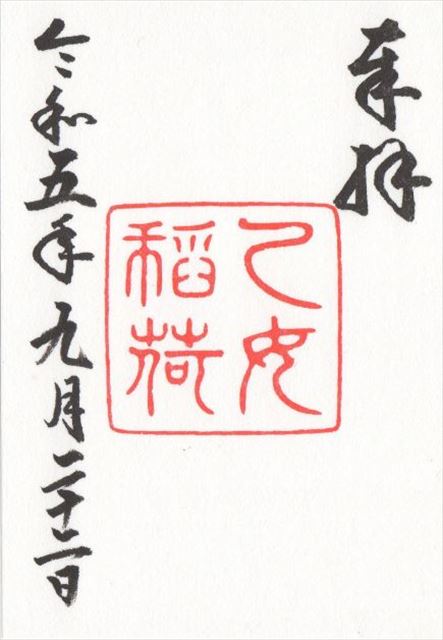 奉拝
乙女
稲荷
令和五年九月二十二日